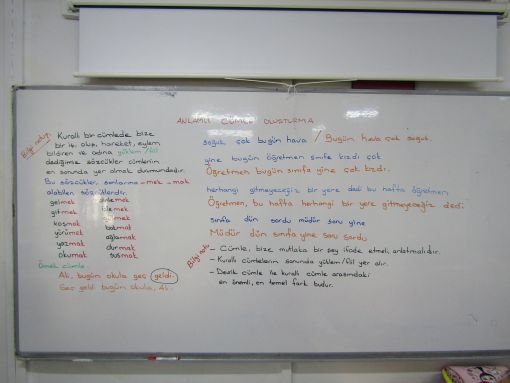 ANLAMLI CÜMLE OLUŞTURMA
Bilgi notu:
Kurallı bir cümlede bize
bir iş, oluş, hareket, eylem
bildiren ve adına yüklem/fiil
dediğimiz sözcükler cümlenin
en sonunda yer almak durumundadır.
Bu sözcükler, sonlarına -mek -mak
alabilen sözcüklerdir.
gelmek dinlemek
gitmek
koşmak
yürümek bakmak
yazmak ağlamak
durmak
okumak susmak
Örnek cümle:
Ali, bugün okula geç geldi.
Geç geldi bugün okula, Ali.
soğuk çok bugün hava / Bugün hava çok soğuk.
yine bugün öğretmen sınıfa kızdı çok
Öğretmen bugün sınıfa yine çok kızdı.
herhangi gitmeyeceğiz bir yere dedi bu hafta öğretmen
Öğretmen, bu hafta herhangi bir yere gitmeyeceğiz dedi
sınıfa dün sordu müdür soru yine
Müdür dün sınıfa yine soru sordu
Bilgi notu
- Cümle, bize mutlaka bir şey ifade etmeli, anlatmalıdır.
- Kurallı cümlelerin sonunda yüklem/fiil yer alır.
- Devrik cümle ile kurallı cümle arasındaki
en önemli, en temel fark budur.